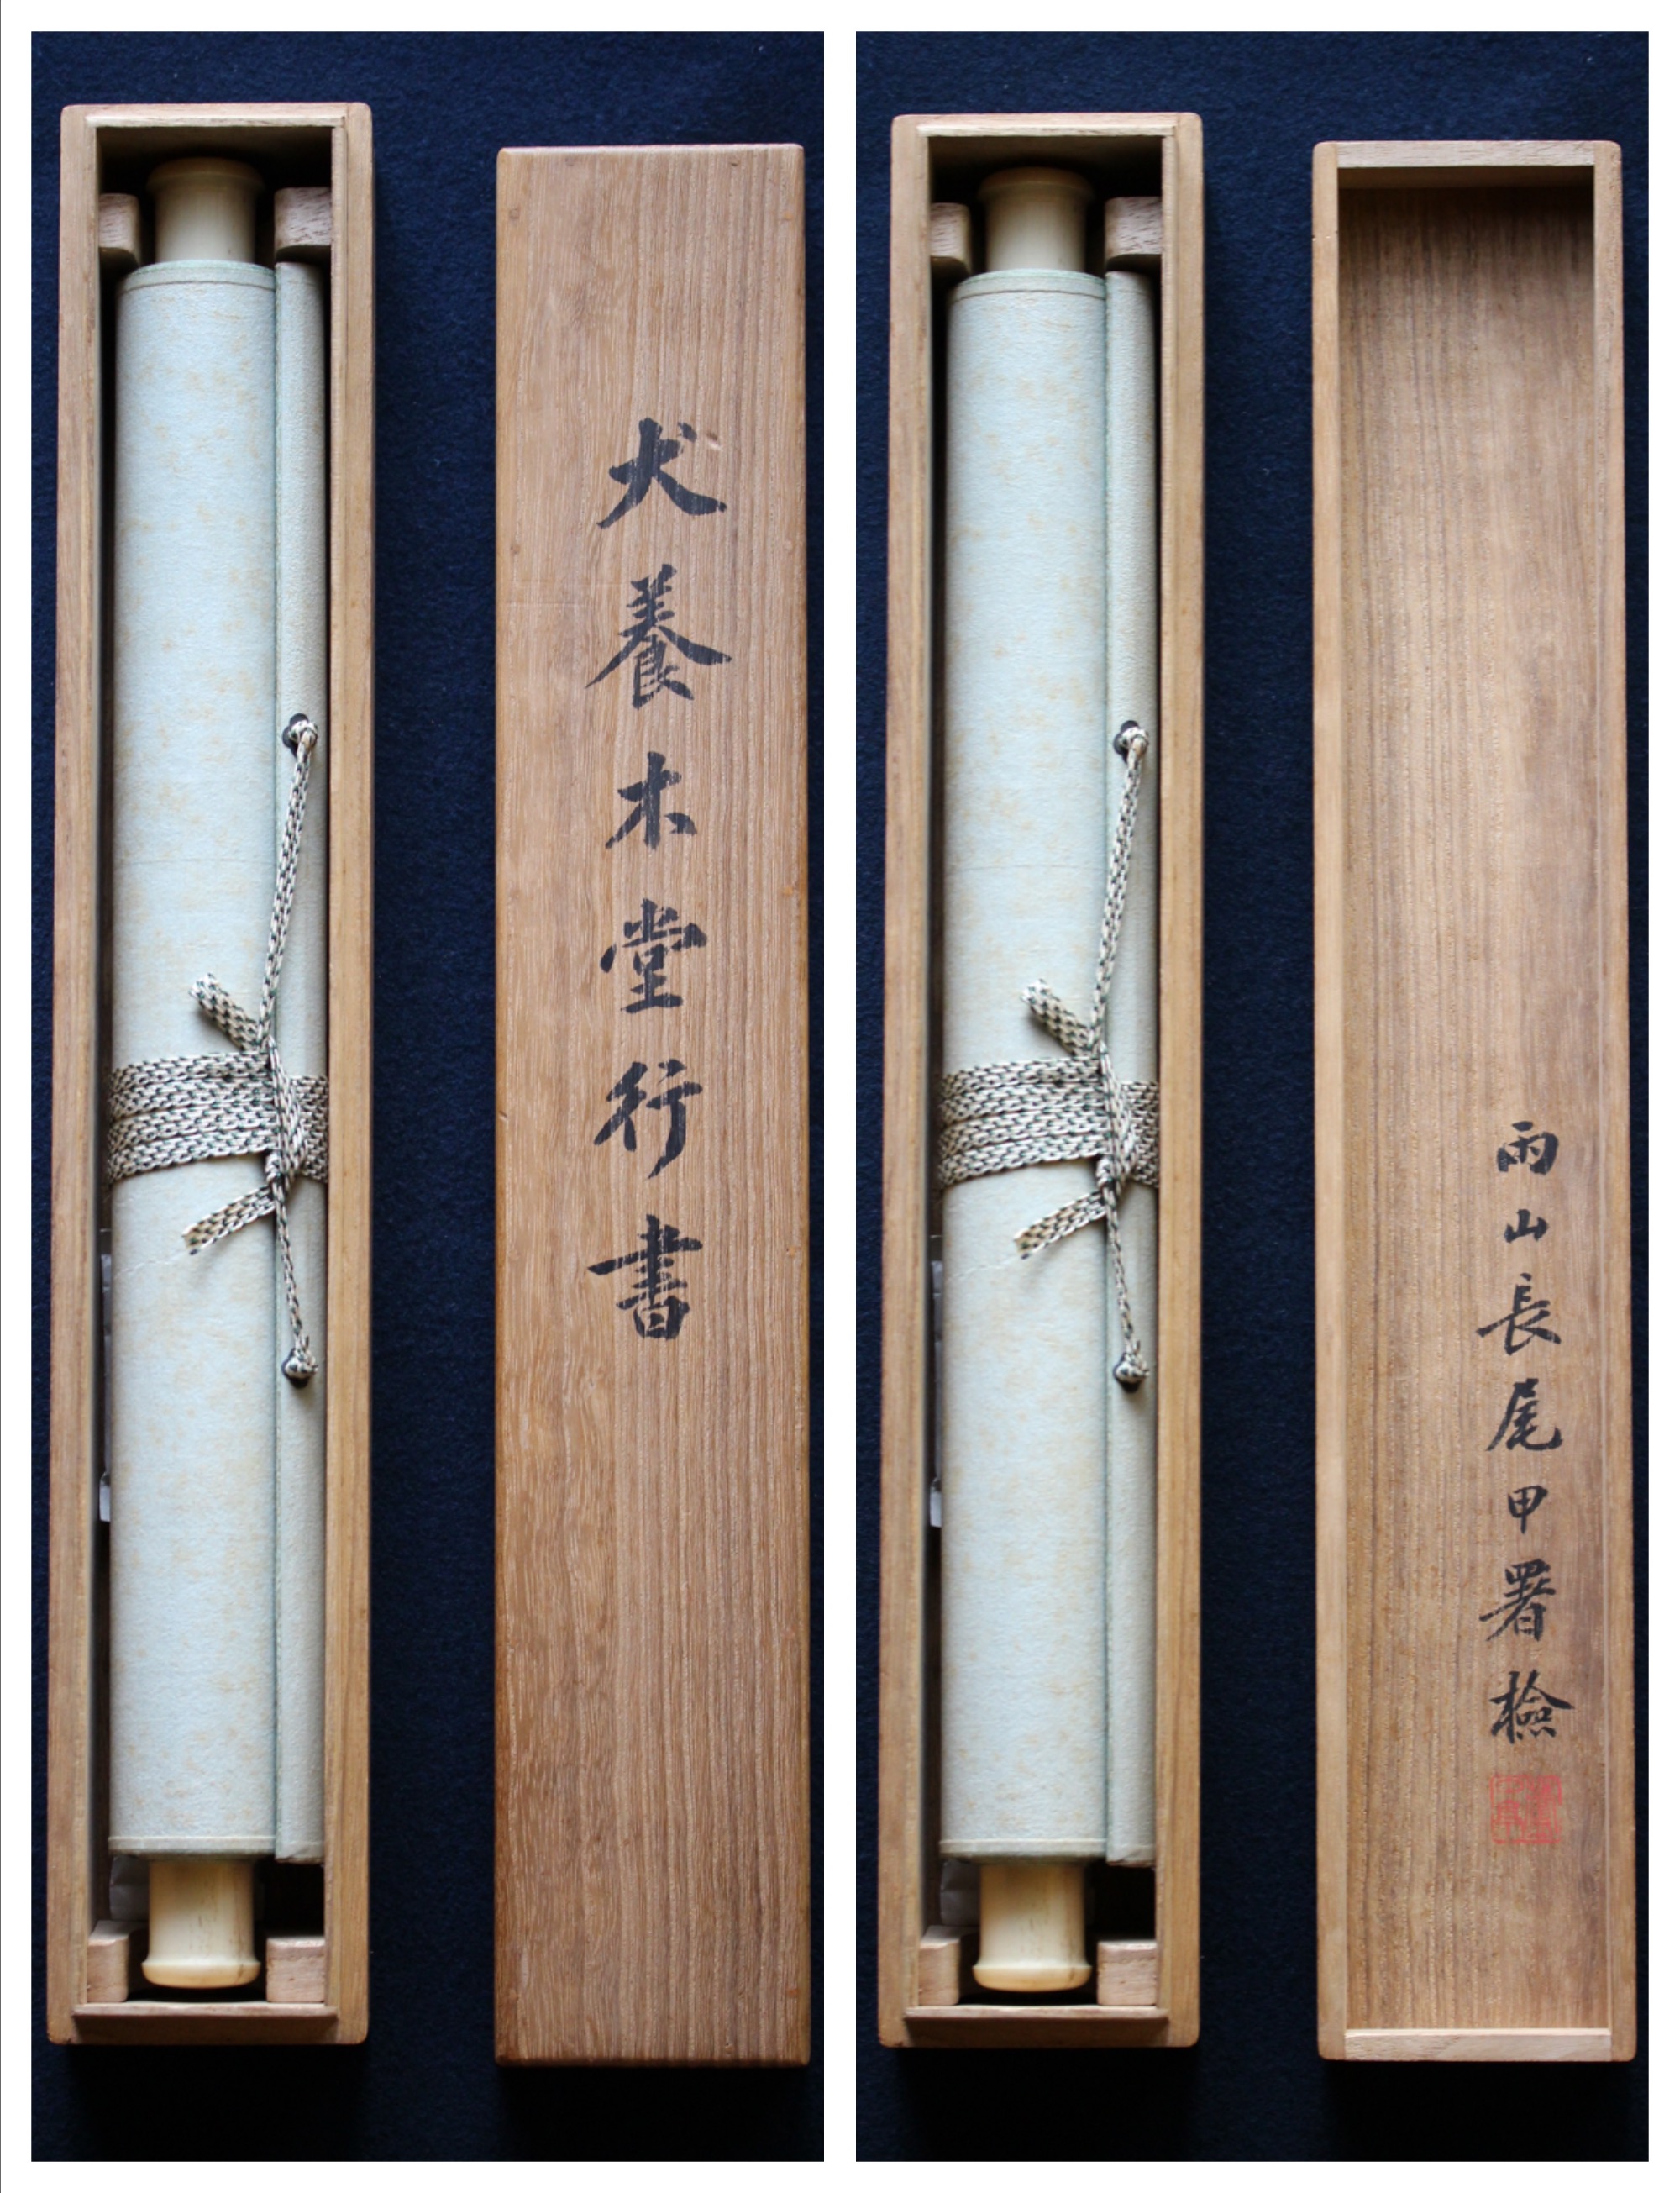 犬養木堂行書
雨山長尾甲署檢